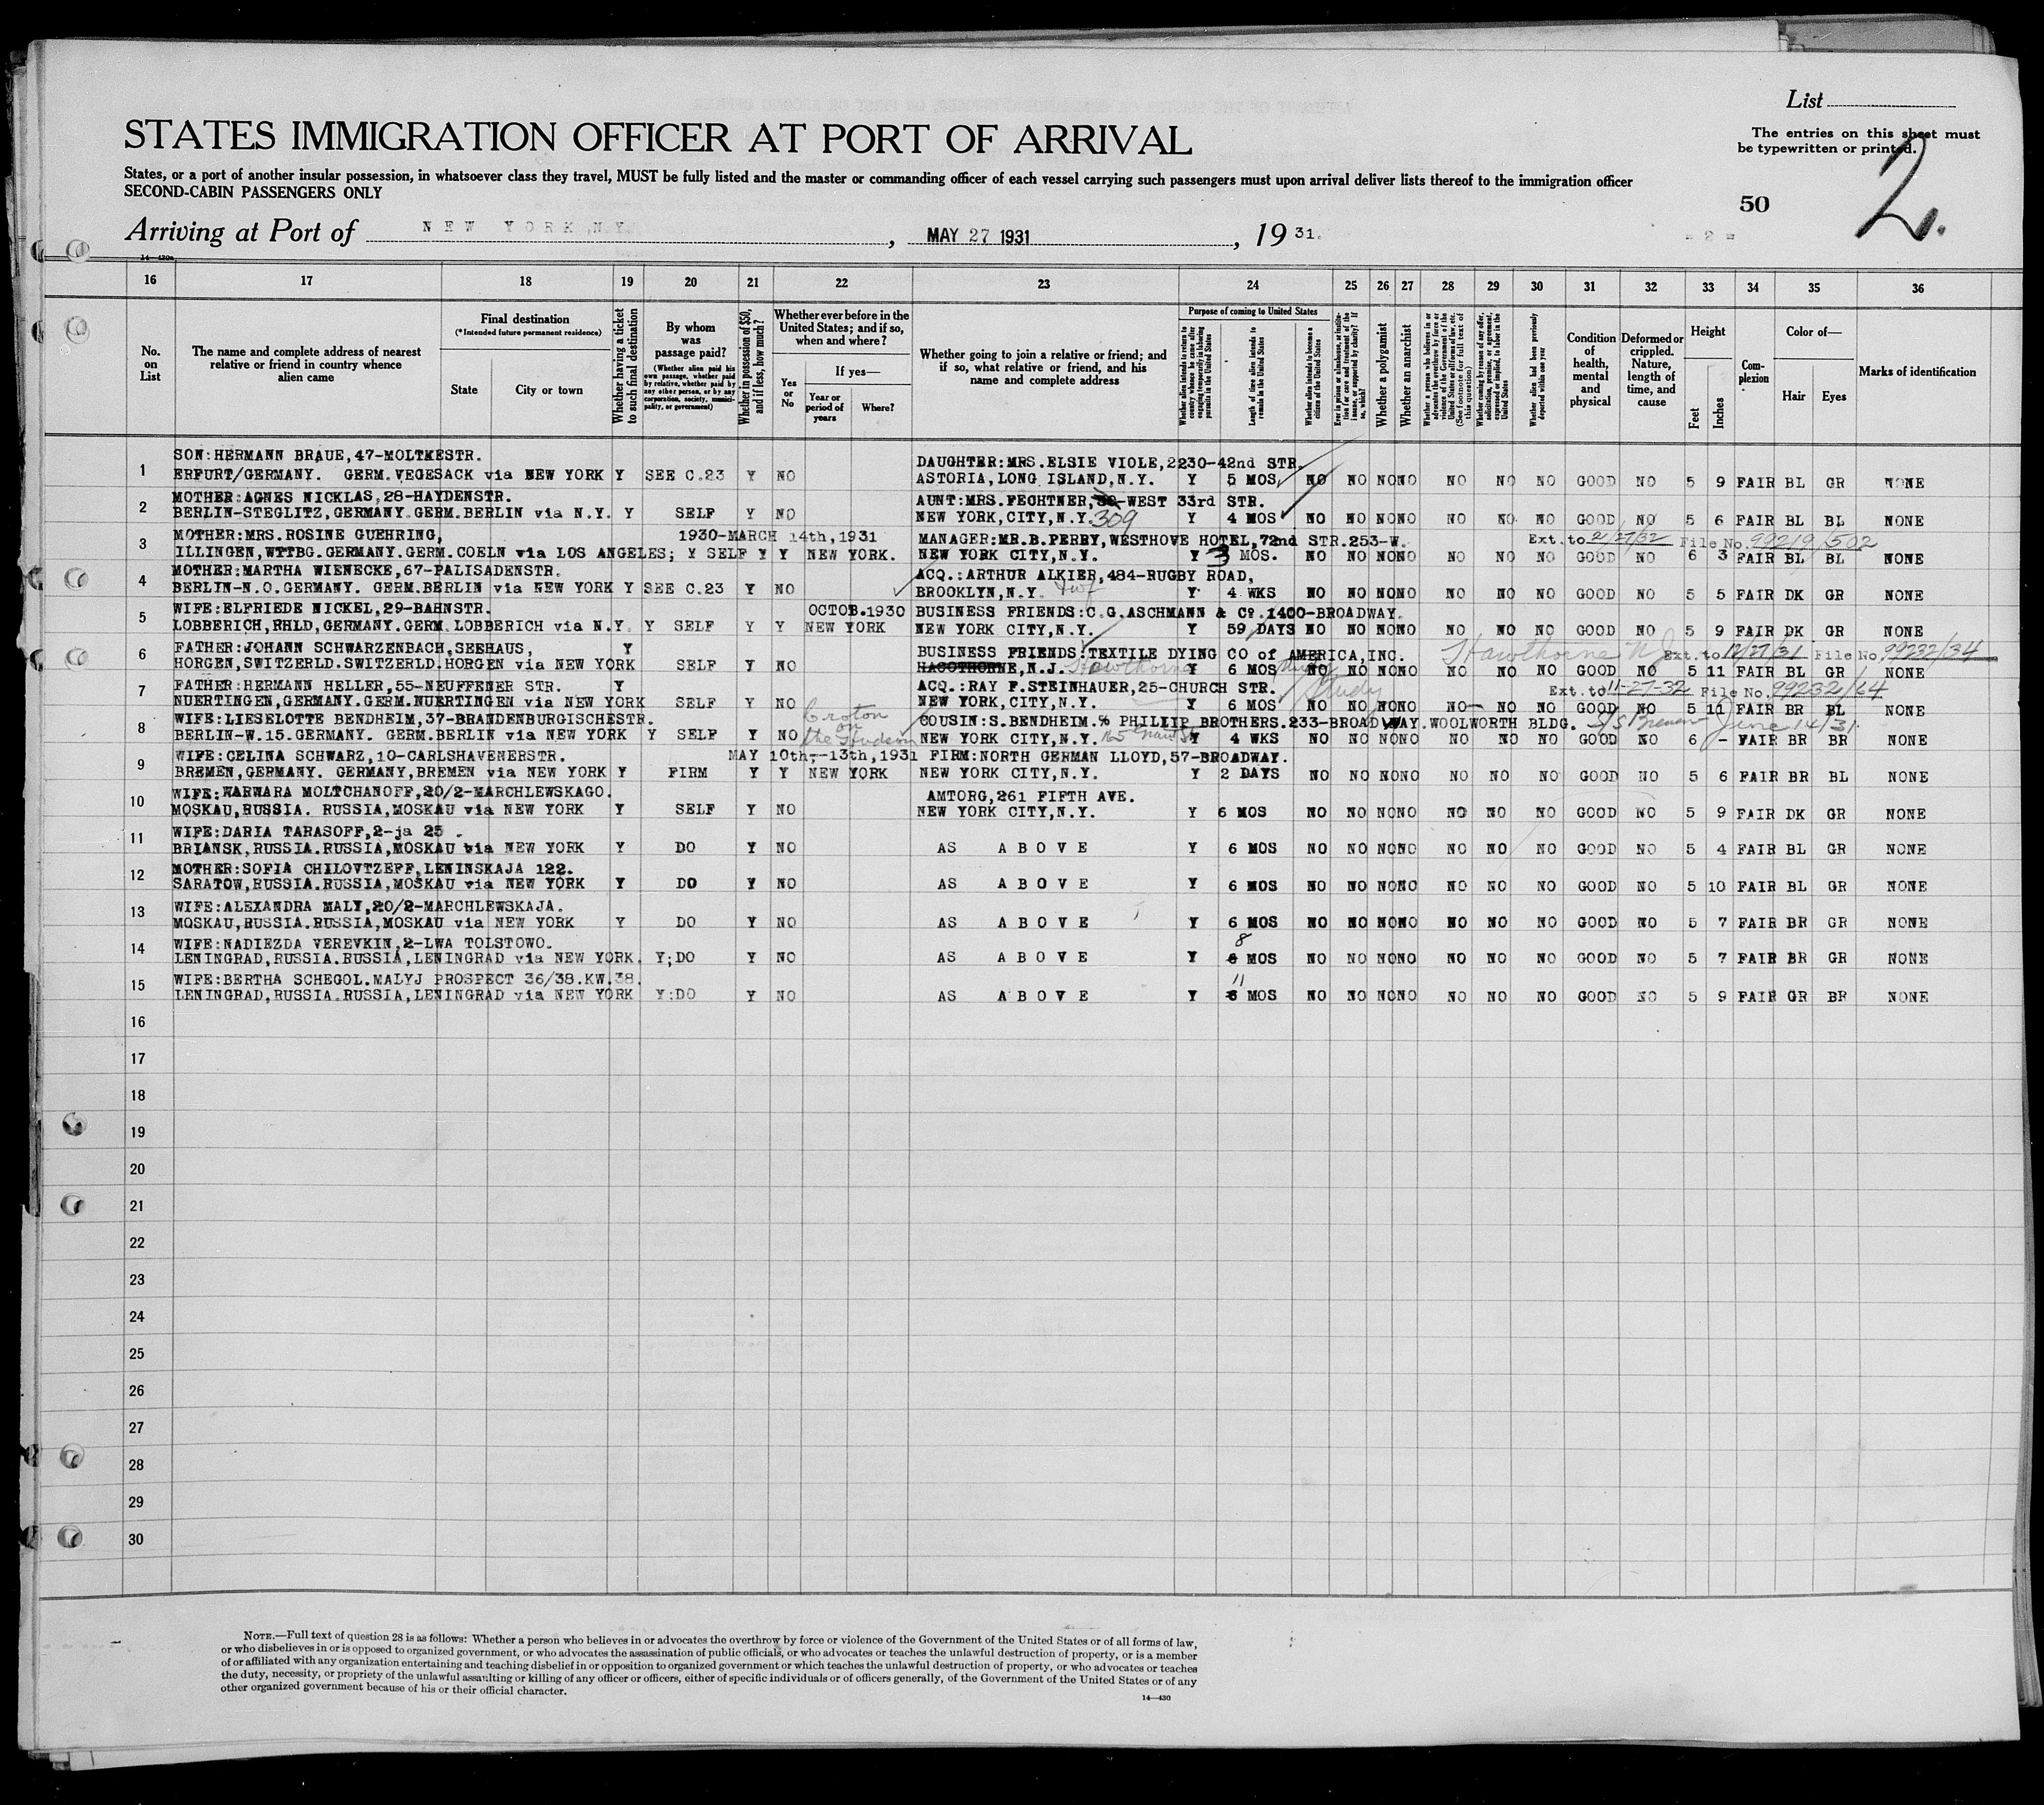 List
STATES IMMIGRATION OFFICER AT PORT OF ARRIVAL
The entries on this sheet must
be typewritten or printed.
States, or a port of another insular possession, in whatsoever class they travel, MUST be fully listed and the master or commanding officer of each vessel carrying such passengers must upon arrival deliver lists thereof to the immigration officer
SECOND-CABIN PASSENGERS ONLY
50
2.
Arriving at Port of NEW YORK, N.Y. , MAY 27 1931 , 19 31.
- 2 -
14—430a
16 17 18 19 20 21 22 23 24 25 26 27 28 29 30 31 32 33 34 35 36
No. on List
The name and complete address of nearest relative or friend in country whence alien came
Final destination
(*Intended future permanent residence)
State
City or town
Whether having a ticket to such final destination
By whom was passage paid?
(Whether alien paid his own passage, whether paid by relative, whether paid by any other person, or by any corporation, society, municipality, or government)
Whether in possession of $50, and if less, how much?
Whether ever before in the United States; and if so, when and where?
Yes or No
If yes—
Year or period of years
Where?
Whether going to join a relative or friend; and if so, what relative or friend, and his name and complete address
Purpose of coming to United States
Whether alien intends to return to country whence he came after engaging temporarily in laboring pursuits in the United States
Length of time alien intends to remain in the United States
Whether alien intends to become a citizen of the United States
Whether a polygamist
Whether an anarchist
Condition of health, mental and physical
Deformed or crippled. Nature, length of time, and cause
Height
Feet
Inches
Complexion
Color of—
Hair
Eyes
Marks of identification
1 SON:HERMANN BRAUE,47-MOLTKESTR.
DAUGHTER:MRS.ELSIE VIOLE,2230-42nd STR.
ERFURT/GERMANY. GERM.VEGESACK via NEW YORK Y SEE C.23 Y NO ASTORIA,LONG ISLAND,N.Y. Y 5 MOS NO NO NO NO NO NO NO GOOD NO 5 9 FAIR BL GR NONE
2 MOTHER:AGNES NICKLAS,28-HAYDENSTR. AUNT:MRS.FECHTNER, -WEST 33rd STR.
BERLIN-STEGLITZ,GERMANY.GERM.BERLIN via N.Y. Y SELF Y NO NEW YORK,CITY,N.Y. 309 Y 4 MOS NO NO NO NO NO NO NO GOOD NO 5 6 FAIR BL BL NONE
3 MOTHER:MRS.ROSINE GUEHRING, 1930-MARCH 14th,1931 MANAGER:MR.B.PERRY,WESTHOVE HOTEL,72nd STR.253-W. Ext.to 2/27/32 File No. 99219/502
ILLINGEN,WTTBG.GERMANY.GERM.COELN via LOS ANGELES; Y SELF Y Y NEW YORK. NEW YORK CITY,N.Y. Y 3 MOS. NO NO NO NO NO NO NO GOOD NO 6 3 FAIR BL BL NONE
4 MOTHER:MARTHA WIENECKE,67-PALISADENSTR. ACQ.:ARTHUR ALKIER,484-RUGBY ROAD,
BERLIN-N.O.GERMANY. GERM.BERLIN via NEW YORK Y SEE C.23 Y NO BROOKLYN,N.Y. Y 4 WKS NO NO NO NO NO NO NO GOOD NO 5 5 FAIR DK GR NONE
5 WIFE:ELFRIEDE NICKEL,29-BAHNSTR. OCTOB.1930 BUSINESS FRIENDS:C.G.ASCHMANN & Co.1400-BROADWAY.
LOBBERICH,RHLD,GERMANY.GERM.LOBBERICH via N.Y. Y SELF Y Y NEW YORK NEW YORK CITY,N.Y. Y 59 DAYS NO NO NO NO NO NO NO GOOD NO 5 9 FAIR DK GR NONE
6 FATHER:JOHANN SCHWARZENBACH,SEEHAUS, Y BUSINESS FRIENDS:TEXTILE DYING CO of AMERICA,INC. Hawthorne N.J. Ext.to 12/27/31 File No. 99232/34
HORGEN,SWITZERLD.SWITZERLD.HORGEN via NEW YORK SELF Y NO HAGOTHORNE,N.J. Hawthorne Y 6 MOS NO NO NO NO NO NO NO GOOD NO 5 11 FAIR BL GR NONE
7 FATHER:HERMANN HELLER,55-NEUFFENER STR. Y ACQ.:RAY F.STEINHAUER,25-CHURCH STR. Study Ext.to 11-27-32 File No. 99232/64
NUERTINGEN,GERMANY.GERM.NUERTINGEN via NEW YORK SELF Y NO NEW YORK,CITY,N.Y. Y 6 MOS NO NO NO NO NO NO NO GOOD NO 5 11 FAIR BR BL NONE
8 WIFE:LIESELOTTE BENDHEIM,37-BRANDENBURGISCHESTR. Croton on the Hudson COUSIN:S.BENDHEIM.% PHILLIP BROTHERS.233-BROADWAY.WOOLWORTH BLDG. S/S Bremen June 14/31
BERLIN-W.15.GERMANY. GERM.BERLIN via NEW YORK Y SELF Y NO NEW YORK CITY,N.Y. Y 4 WKS NO NO NO NO NO NO NO GOOD NO 6 - FAIR BR BR NONE
9 WIFE:CELINA SCHWARZ,10-CARLSHAVENERSTR. MAY 10th,-13th,1931 FIRM:NORTH GERMAN LLOYD,57-BROADWAY.
BREMEN,GERMANY. GERMANY,BREMEN via NEW YORK Y FIRM Y Y NEW YORK NEW YORK CITY,N.Y. Y 2 DAYS NO NO NO NO NO NO NO GOOD NO 5 6 FAIR BR BL NONE
10 WIFE:WARWARA MOLTCHANOFF,20/2-MARCHLEWSKAGO. AMTORG,261 FIFTH AVE.
MOSKAU,RUSSIA. RUSSIA,MOSKAU via NEW YORK Y SELF Y NO NEW YORK CITY,N.Y. Y 6 MOS NO NO NO NO NO NO NO GOOD NO 5 9 FAIR DK GR NONE
11 WIFE:DARIA TARASOFF,2-ja 25 .
BRIANSK,RUSSIA.RUSSIA,MOSKAU via NEW YORK Y DO Y NO AS ABOVE Y 6 MOS NO NO NO NO NO NO NO GOOD NO 5 4 FAIR BL GR NONE
12 MOTHER:SOFIA CHILOVTZEFF,LENINSKAJA 122.
SARATOW,RUSSIA.RUSSIA,MOSKAU via NEW YORK Y DO Y NO AS ABOVE Y 6 MOS NO NO NO NO NO NO NO GOOD NO 5 10 FAIR BL GR NONE
13 WIFE:ALEXANDRA MALY,20/2-MARCHLEWSKAJA.
MOSKAU,RUSSIA.RUSSIA,MOSKAU via NEW YORK Y DO Y NO AS ABOVE Y 6 MOS NO NO NO NO NO NO NO GOOD NO 5 7 FAIR BR GR NONE
14 WIFE:NADIEZDA VEREVKIN,2-LWA TOLSTOWO. 8
LENINGRAD,RUSSIA.RUSSIA,LENINGRAD via NEW YORK. Y;DO Y NO AS ABOVE Y 6 MOS NO NO NO NO NO NO NO GOOD NO 5 7 FAIR BR GR NONE
15 WIFE:BERTHA SCHEGOL.MALYJ PROSPECT 36/38.KW.38. 11
LENINGRAD,RUSSIA.RUSSIA,LENINGRAD via NEW YORK Y:DO Y NO AS ABOVE Y 6 MOS NO NO NO NO NO NO NO GOOD NO 5 9 FAIR GR BR NONE
16
17
18
19
20
21
22
23
24
25
26
27
28
29
30
NOTE.—Full text of question 28 is as follows: Whether a person who believes in or advocates the overthrow by force or violence of the Government of the United States or of all forms of law,
or who disbelieves in or is opposed to organized government, or who advocates the assassination of public officials, or who advocates or teaches the unlawful destruction of property, or is a member
of or affiliated with any organization entertaining and teaching disbelief in or opposition to organized government or which teaches the unlawful destruction of property, or who advocates or teaches
the duty, necessity, or propriety of the unlawful assaulting or killing of any officer or officers, either of specific individuals or of officers generally, of the Government of the United States or of any
other organized government because of his or their official character.
14—430